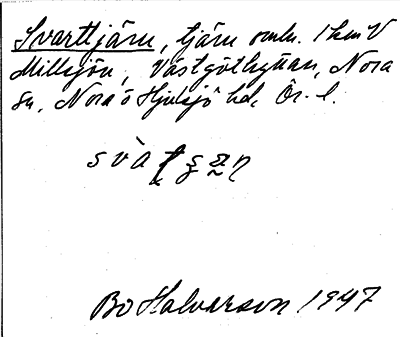 Svarttjärn, tjärn omkr. 1 km V
Millsjön, Västgöthyttan, Nora
sn, Nora o Hjulsjö hd, Ör. l.
Bo Halvarson 1947